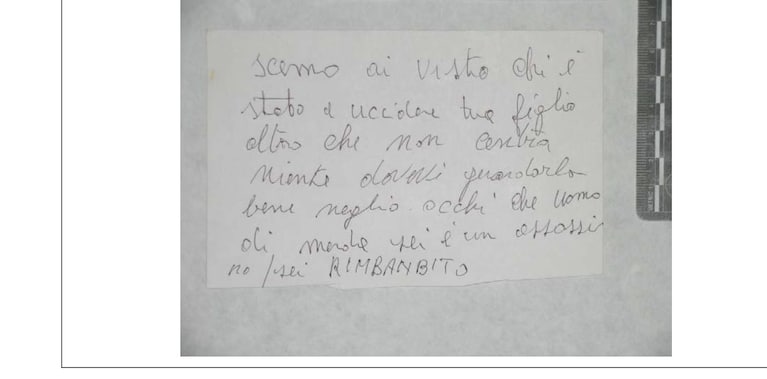 scemo ai visto chi è
stato a uccidere tua figlia
altro che non centra
niente dovevi guardarlo
bene neglio occhi che uomo
di merda sei è un assassi
no / sei RIMBANBITO